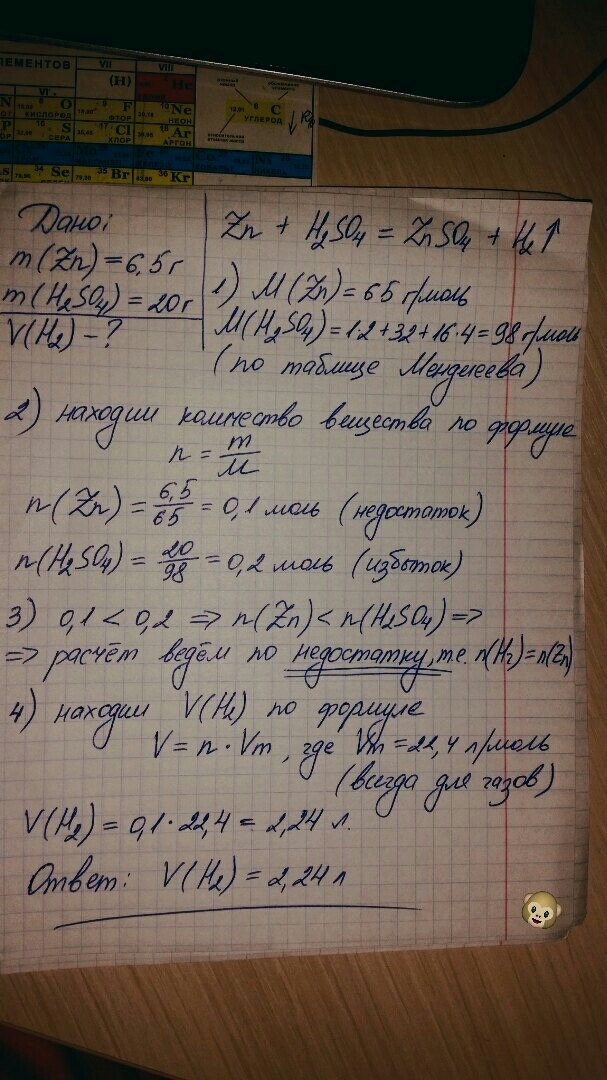 ЛЕМЕНТОВ
VII
VIII
VI
(H)
He
O
КИСЛОРОД
F
ФТОР
Ne
НЕОН
C
УГЛЕРОД
S
СЕРА
Cl
ХЛОР
Ar
АРГОН
Se
Br
Kr
Дано:
m(Zn)=6,5г
m(H₂SO₄)=20г
V(H₂)-?
Zn + H₂SO₄ = ZnSO₄ + H₂↑
1) M(Zn)=65 г/моль
M(H₂SO₄)=1·2+32+16·4=98 г/моль
(по таблице Менделеева)
2) находим количество вещества по формуле
n = m/M
n(Zn) = 6,5/65 = 0,1 моль (недостаток)
n(H₂SO₄) = 20/98 = 0,2 моль (избыток)
3) 0,1 < 0,2 => n(Zn) < n(H₂SO₄) =>
=> расчёт ведём по недостатку, т.е. n(H₂)=n(Zn)
4) находим V(H₂) по формуле
V = n · Vm, где Vm = 22,4 л/моль
(всегда для газов)
V(H₂) = 0,1 · 22,4 = 2,24 л.
Ответ: V(H₂) = 2,24 л